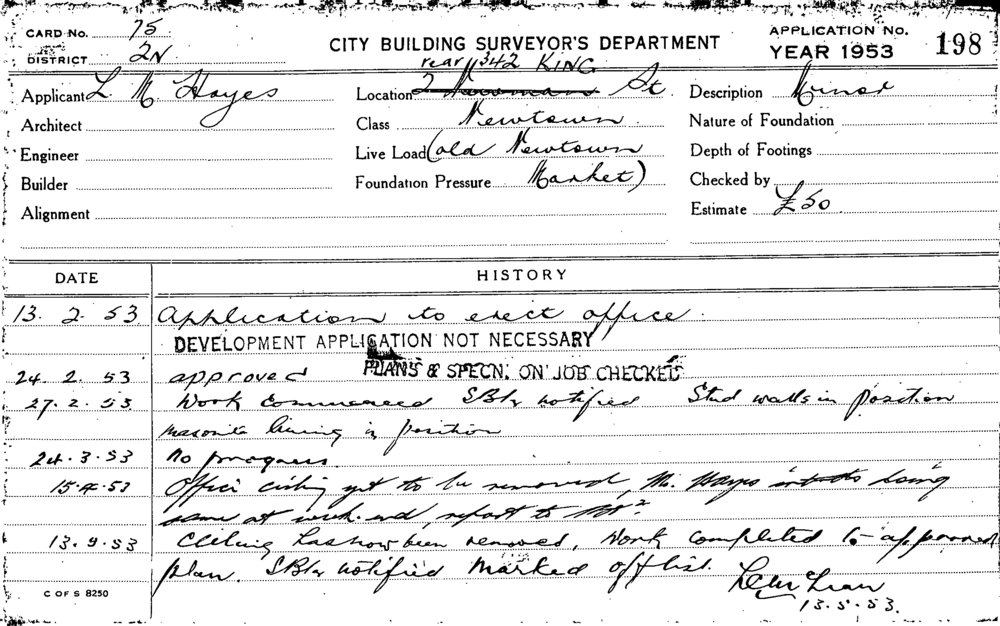 CARD No. 75
DISTRICT 2N
CITY BUILDING SURVEYOR'S DEPARTMENT
APPLICATION No.
YEAR 1953 198
rear 342 KING
Applicant L M Hayes Location St. Description Minor
Architect Class Newtown Nature of Foundation
Engineer Live Load (old Newtown Depth of Footings
Builder Foundation Pressure Market) Checked by
Alignment Estimate £50.
DATE HISTORY
13. 2. 53 Application to erect office.
DEVELOPMENT APPLICATION NOT NECESSARY
24. 2. 53 approved PLANS & SPECN. ON JOB CHECKED
27. 2. 53 Work Commenced notified Stud walls in position
masonite lining in position
24. 3. 53 No progress.
15.4.53 Office ceiling yet to be removed, Mr. Hayes doing
same at week-end, report to
13.9.53 Ceiling has now been removed, Work completed to approved
plan. notified Marked off list.
13.5.53.
C OF S 8250